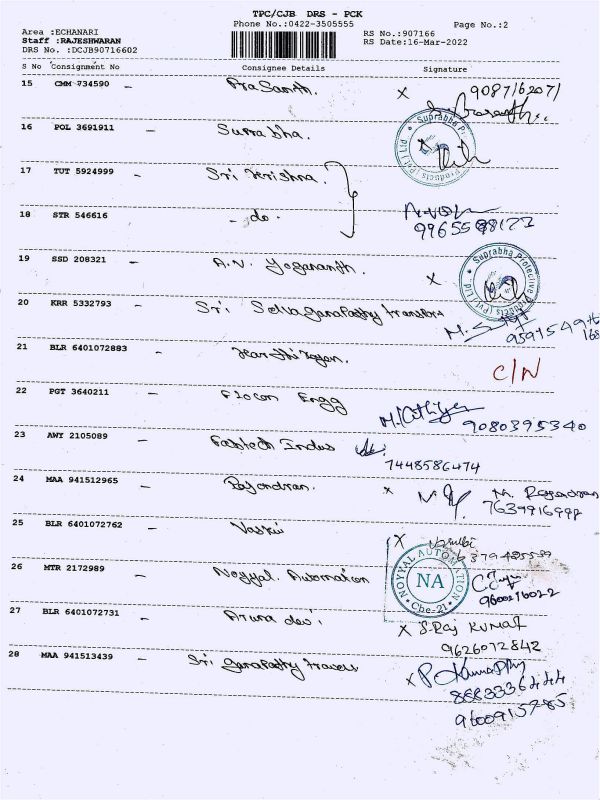 TPC/CJB DRS - PCK
Phone No.:0422-3505555
Page No.:2
Area :ECHANARI
Staff :RAJESHWARAN
DRS No. :DCJB90716602
RS No.:907166
RS Date:16-Mar-2022
S No Consignment No Consignee Details Signature
15 CMM 734590 - Prasanth.
16 POL 3691911 - Suprabha.
Suprabha P
Products (Pvt) Ltd
17 TUT 5924999 - Sri Krishna.
18 STR 546616 - do.
19 SSD 208321 - A.N. Yogananth. x
Suprabha Protective Products (Pvt) Ltd
20 KRR 5332793 - Sri Selva Ganapathy Transport
21 BLR 6401072883 - C/N
22 PGT 3640211 - Flocon Engg
9080395340
23 AWY 2105089 - Fabtech Indus
7448586474
24 MAA 941512965 - Rajendran. x
25 BLR 6401072762 - x
26 MTR 2172989 - Noyyal Automation
NOYYAL AUTOMATION
NA
Cbe-21
9600216022
27 BLR 6401072731 - Aruna devi x S.Raj Kumar
9626072842
28 MAA 941513439 - Sri Ganapathy travels x
9600915785